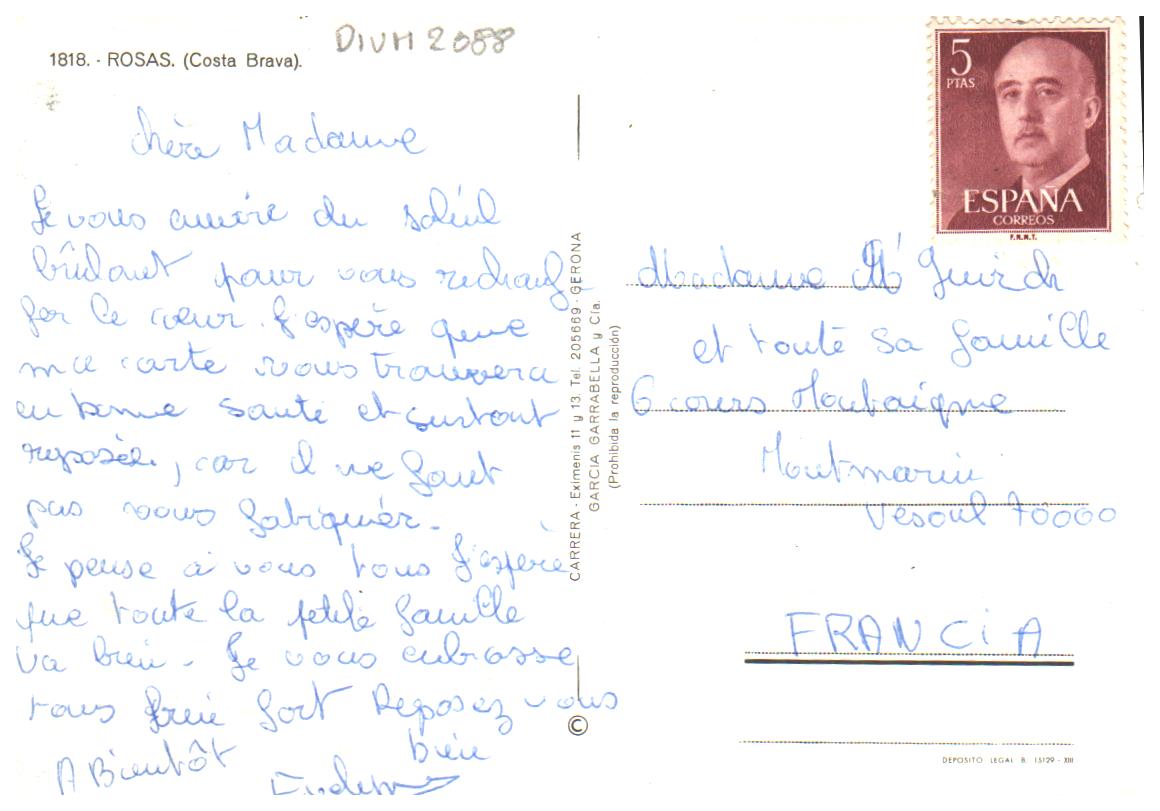 DIVM 2088
1818. - ROSAS. (Costa Brava).
Chère Madame
Je vous envoie du soleil
brûlant pour vous rechauf
fer le cœur. J'espère que
ma carte vous trouvera
en bonne santé et surtout
reposée, car il ne faut
pas vous fatiguer.
Je pense à vous tous J'espère
que toute la petite famille
va bien. Je vous embrasse
tous bien fort Reposez vous
bien
A Bientôt
CARRERA - Eximenis 11 y 13. Tel. 205669 - GERONA
GARCIA GARRABELLA y Cía.
(Prohibida la reproducción)
©
5
PTAS
ESPAÑA
CORREOS
F.N.M.T.
Madame
et toute sa famille
6 cours Montaigne
Montmarin
Vesoul 70000
FRANCiA
DEPOSITO LEGAL B. 15129 - XIII